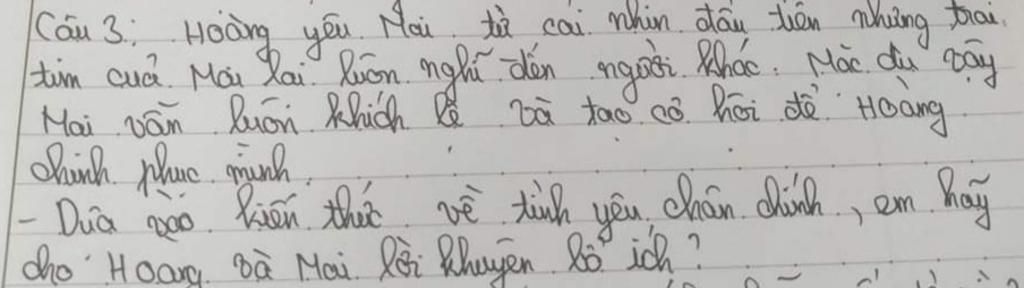 Câu 3: Hoàng yêu Mai từ cái nhìn đầu tiên nhưng trai
tim cuả Mai lai luôn nghĩ đến người khác. Mặc dù vậy
Mai vẫn luôn khích lệ và tạo cơ hội để Hoàng
chinh phục mình.
- Dựa vào kiến thức về tình yêu chân chính, em hãy
cho Hoang và Mai lời khuyên bổ ích?